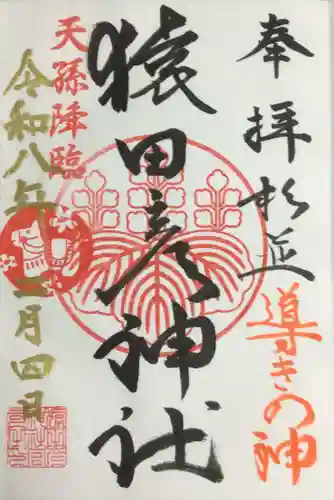 奉拝 杉並
導きの神
猿田彦神社
天孫降臨
令和八年二月四日